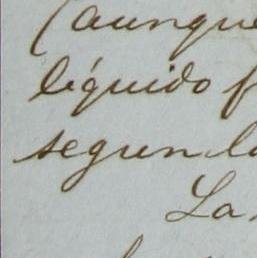 (aunque
líquido f
segun la
La